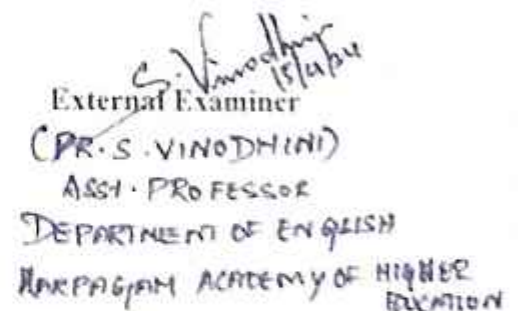 S. Vinodhini
15/4/24
External Examiner
(DR. S. VINODHINI)
ASST. PROFESSOR
DEPARTMENT OF ENGLISH
KARPAGAM ACADEMY OF HIGHER
EDUCATION